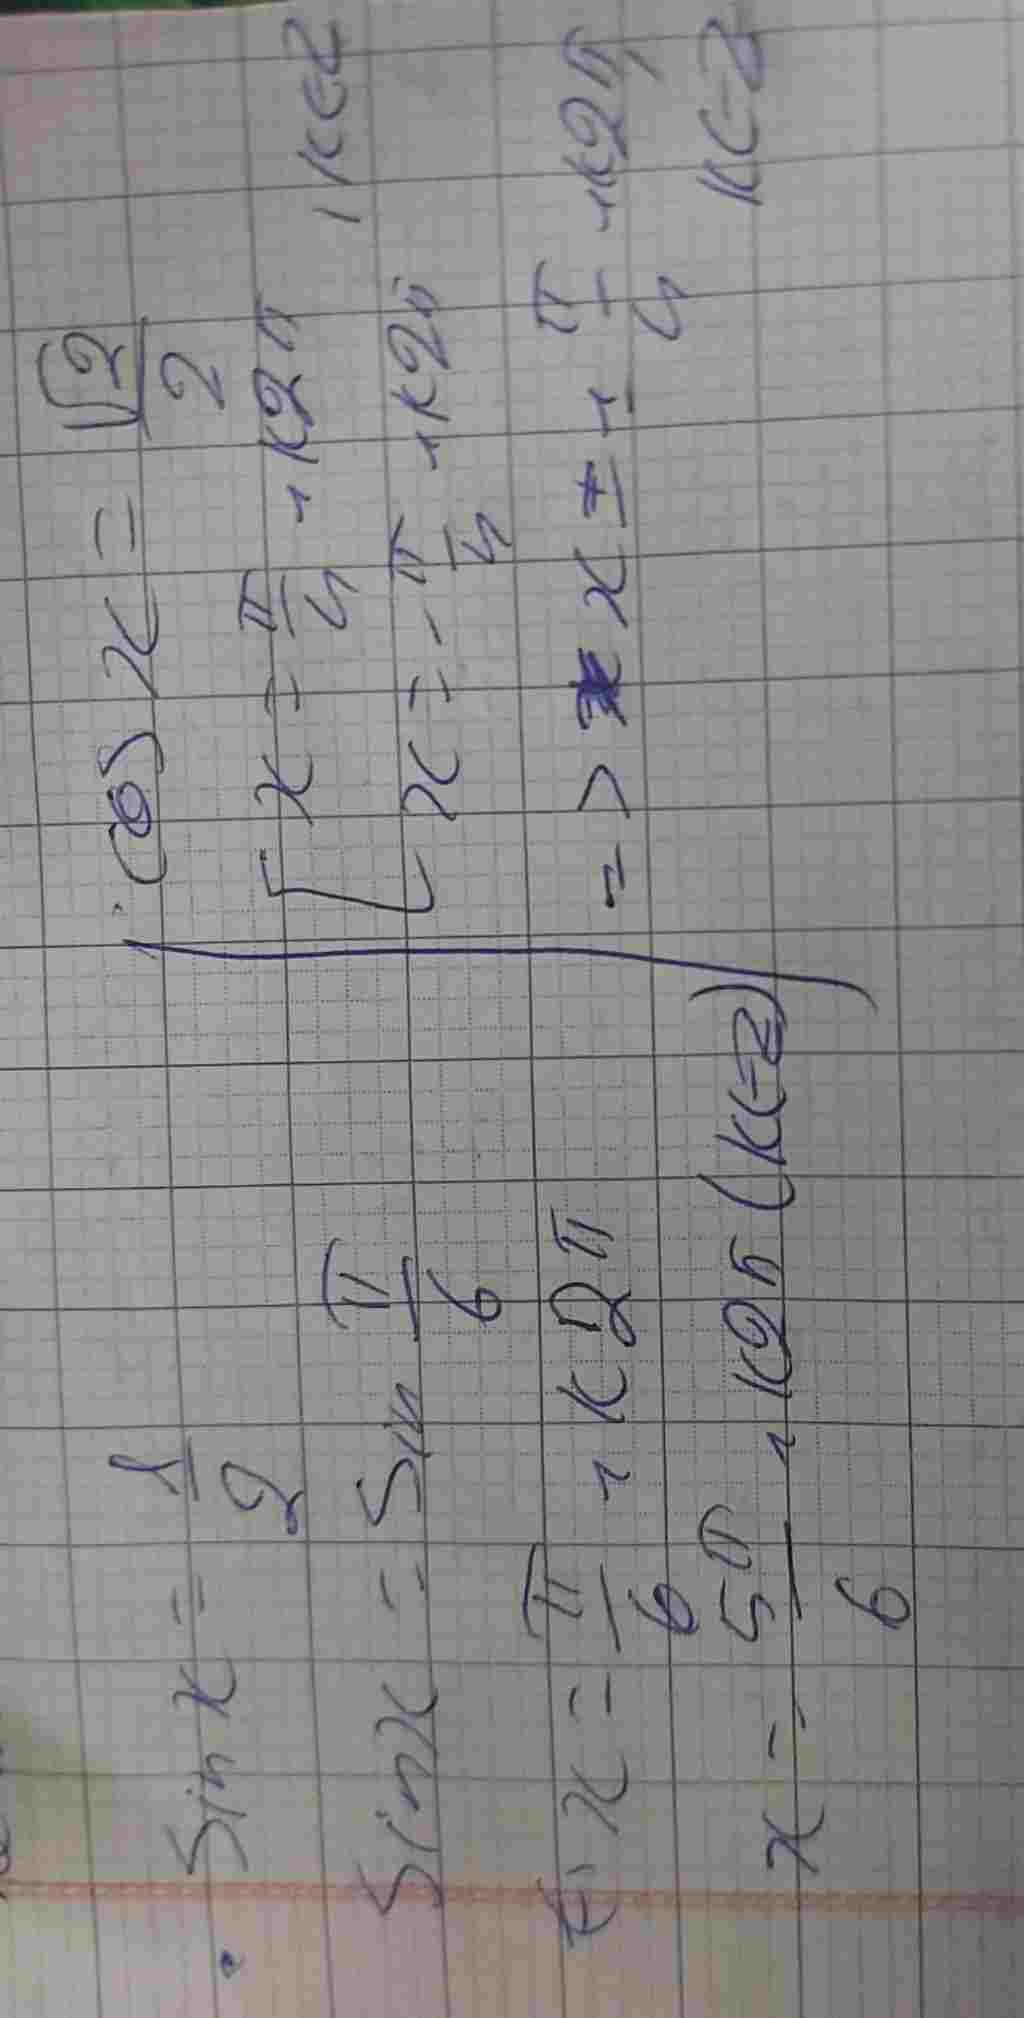 • Sin x = 1/2
Sin x = Sin π/6
x = π/6 + k2π
x = 5π/6 + k2π (k∈Z)
. Cos x = √2/2
[ x = π/4 + k2π
[ x = -π/4 + k2π , k∈Z
=> x ± + π/4 + k2π,
k∈Z